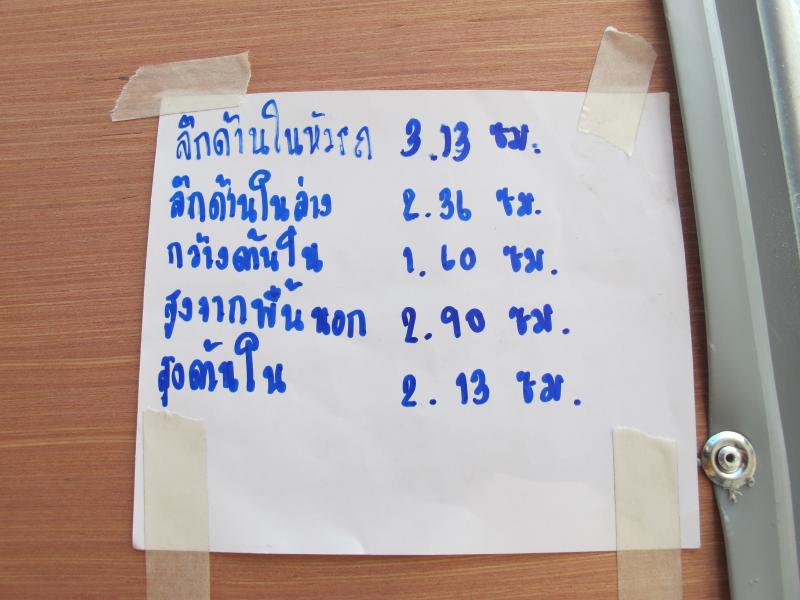 ลึกด้านในหัวรถ 3.13 ซม.
ลึกด้านในล่าง 2.36 ซม.
กว้างด้านใน 1.60 ซม.
สูงจากพื้นนอก 2.90 ซม.
สูงด้านใน 2.13 ซม.